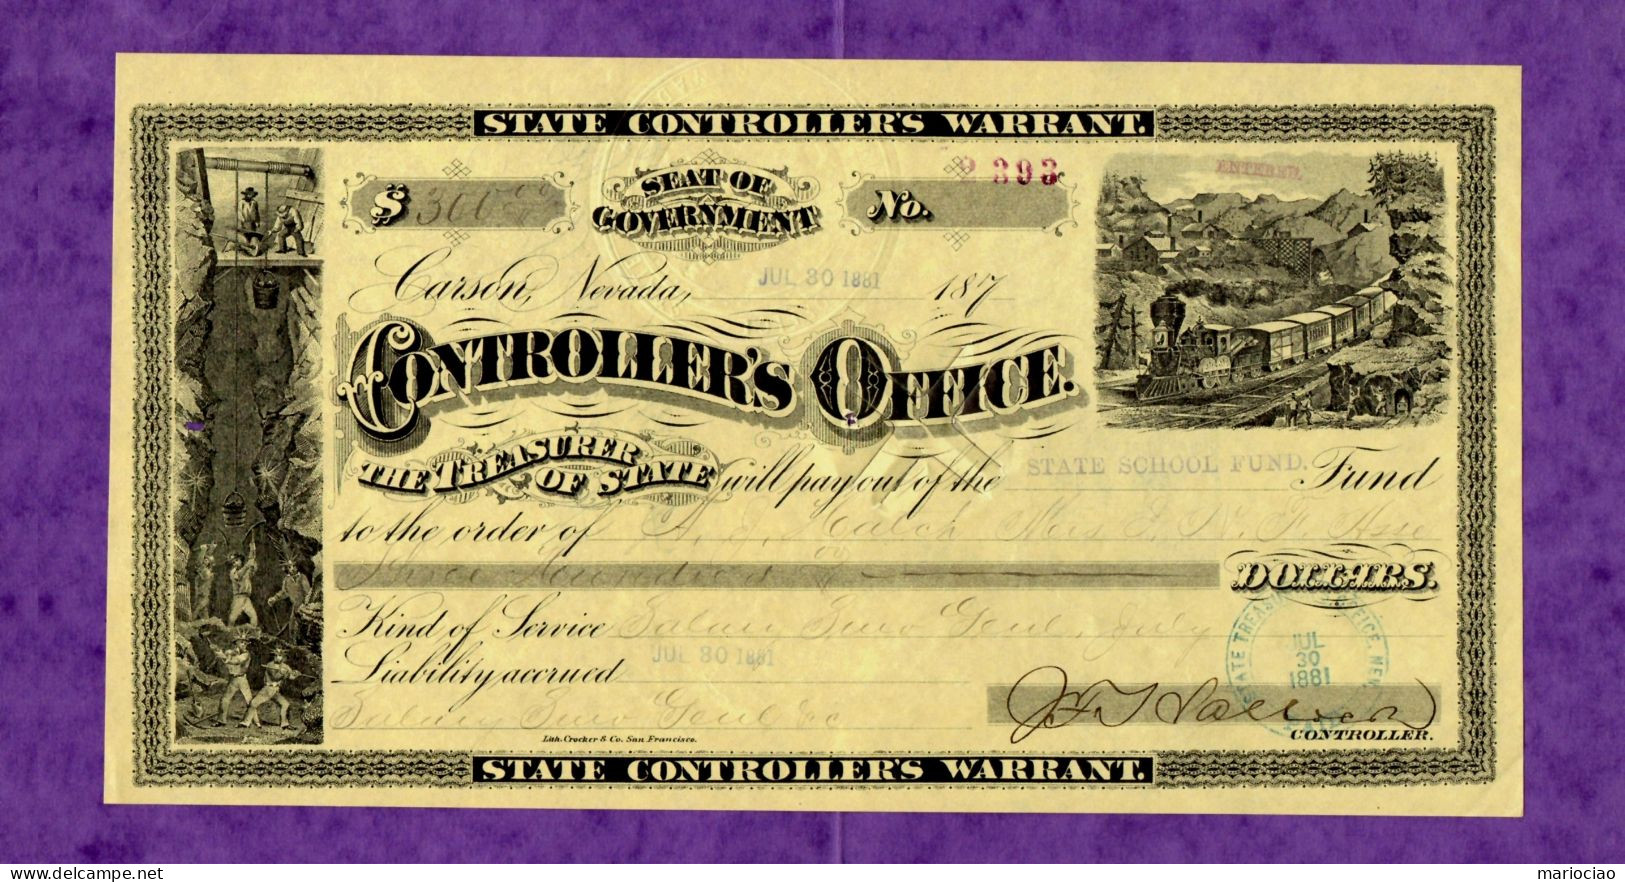 STATE CONTROLLER'S WARRANT.
$ 300 00
SEAT OF GOVERNMENT
No. 2393
ENTERED.
Carson, Nevada, JUL 30 1881 187
CONTROLLER'S OFFICE.
THE TREASURER OF STATE will pay out of the STATE SCHOOL FUND. Fund
to the order of A. J.
Three Hundred DOLLARS.
Kind of Service Salary Genl. July
Liability accrued JUL 30 1881
Salary Genl
STATE TREASURER'S OFFICE. NEVADA
JUL
30
1881
CONTROLLER.
Lith. Crocker & Co. San Francisco.
STATE CONTROLLER'S WARRANT.
delcampe.net
mariociao